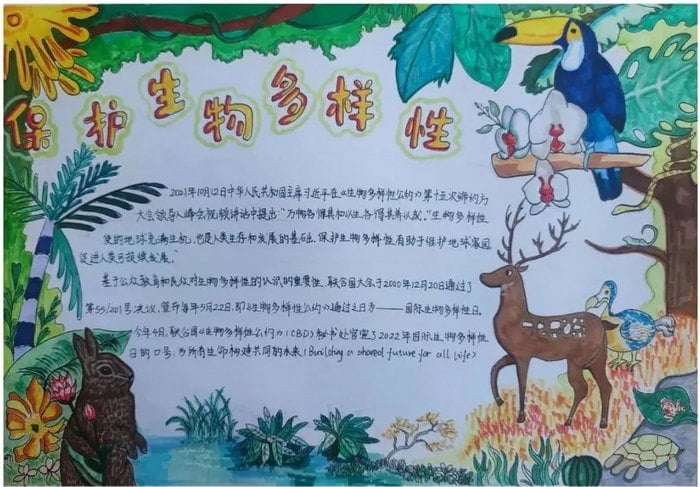 保护生物多样性
2021年10月12日中华人民共和国主席习近平在《生物多样性公约》第十五次缔约方
大会领导人峰会视频讲话中提出："万物各得其和以生,各得其养以成。"生物多样性
使的地球充满生机,也是人类生存和发展的基础。保护生物多样性有助于保护地球家园,
促进人类可持续发展。
基于公众教育和民众对生物多样性的认识的重要性,联合国大会于2000年12月20日通过了
第55/201号决议,宣布每年5月22日,即《生物多样性公约》通过之日为——国际生物多样性日。
今年4月,联合国《生物多样性公约》(CBD)秘书处官宣了2022年国际生物多样性
日的口号:为所有生命构建共同的未来(Building a shared future for all life)